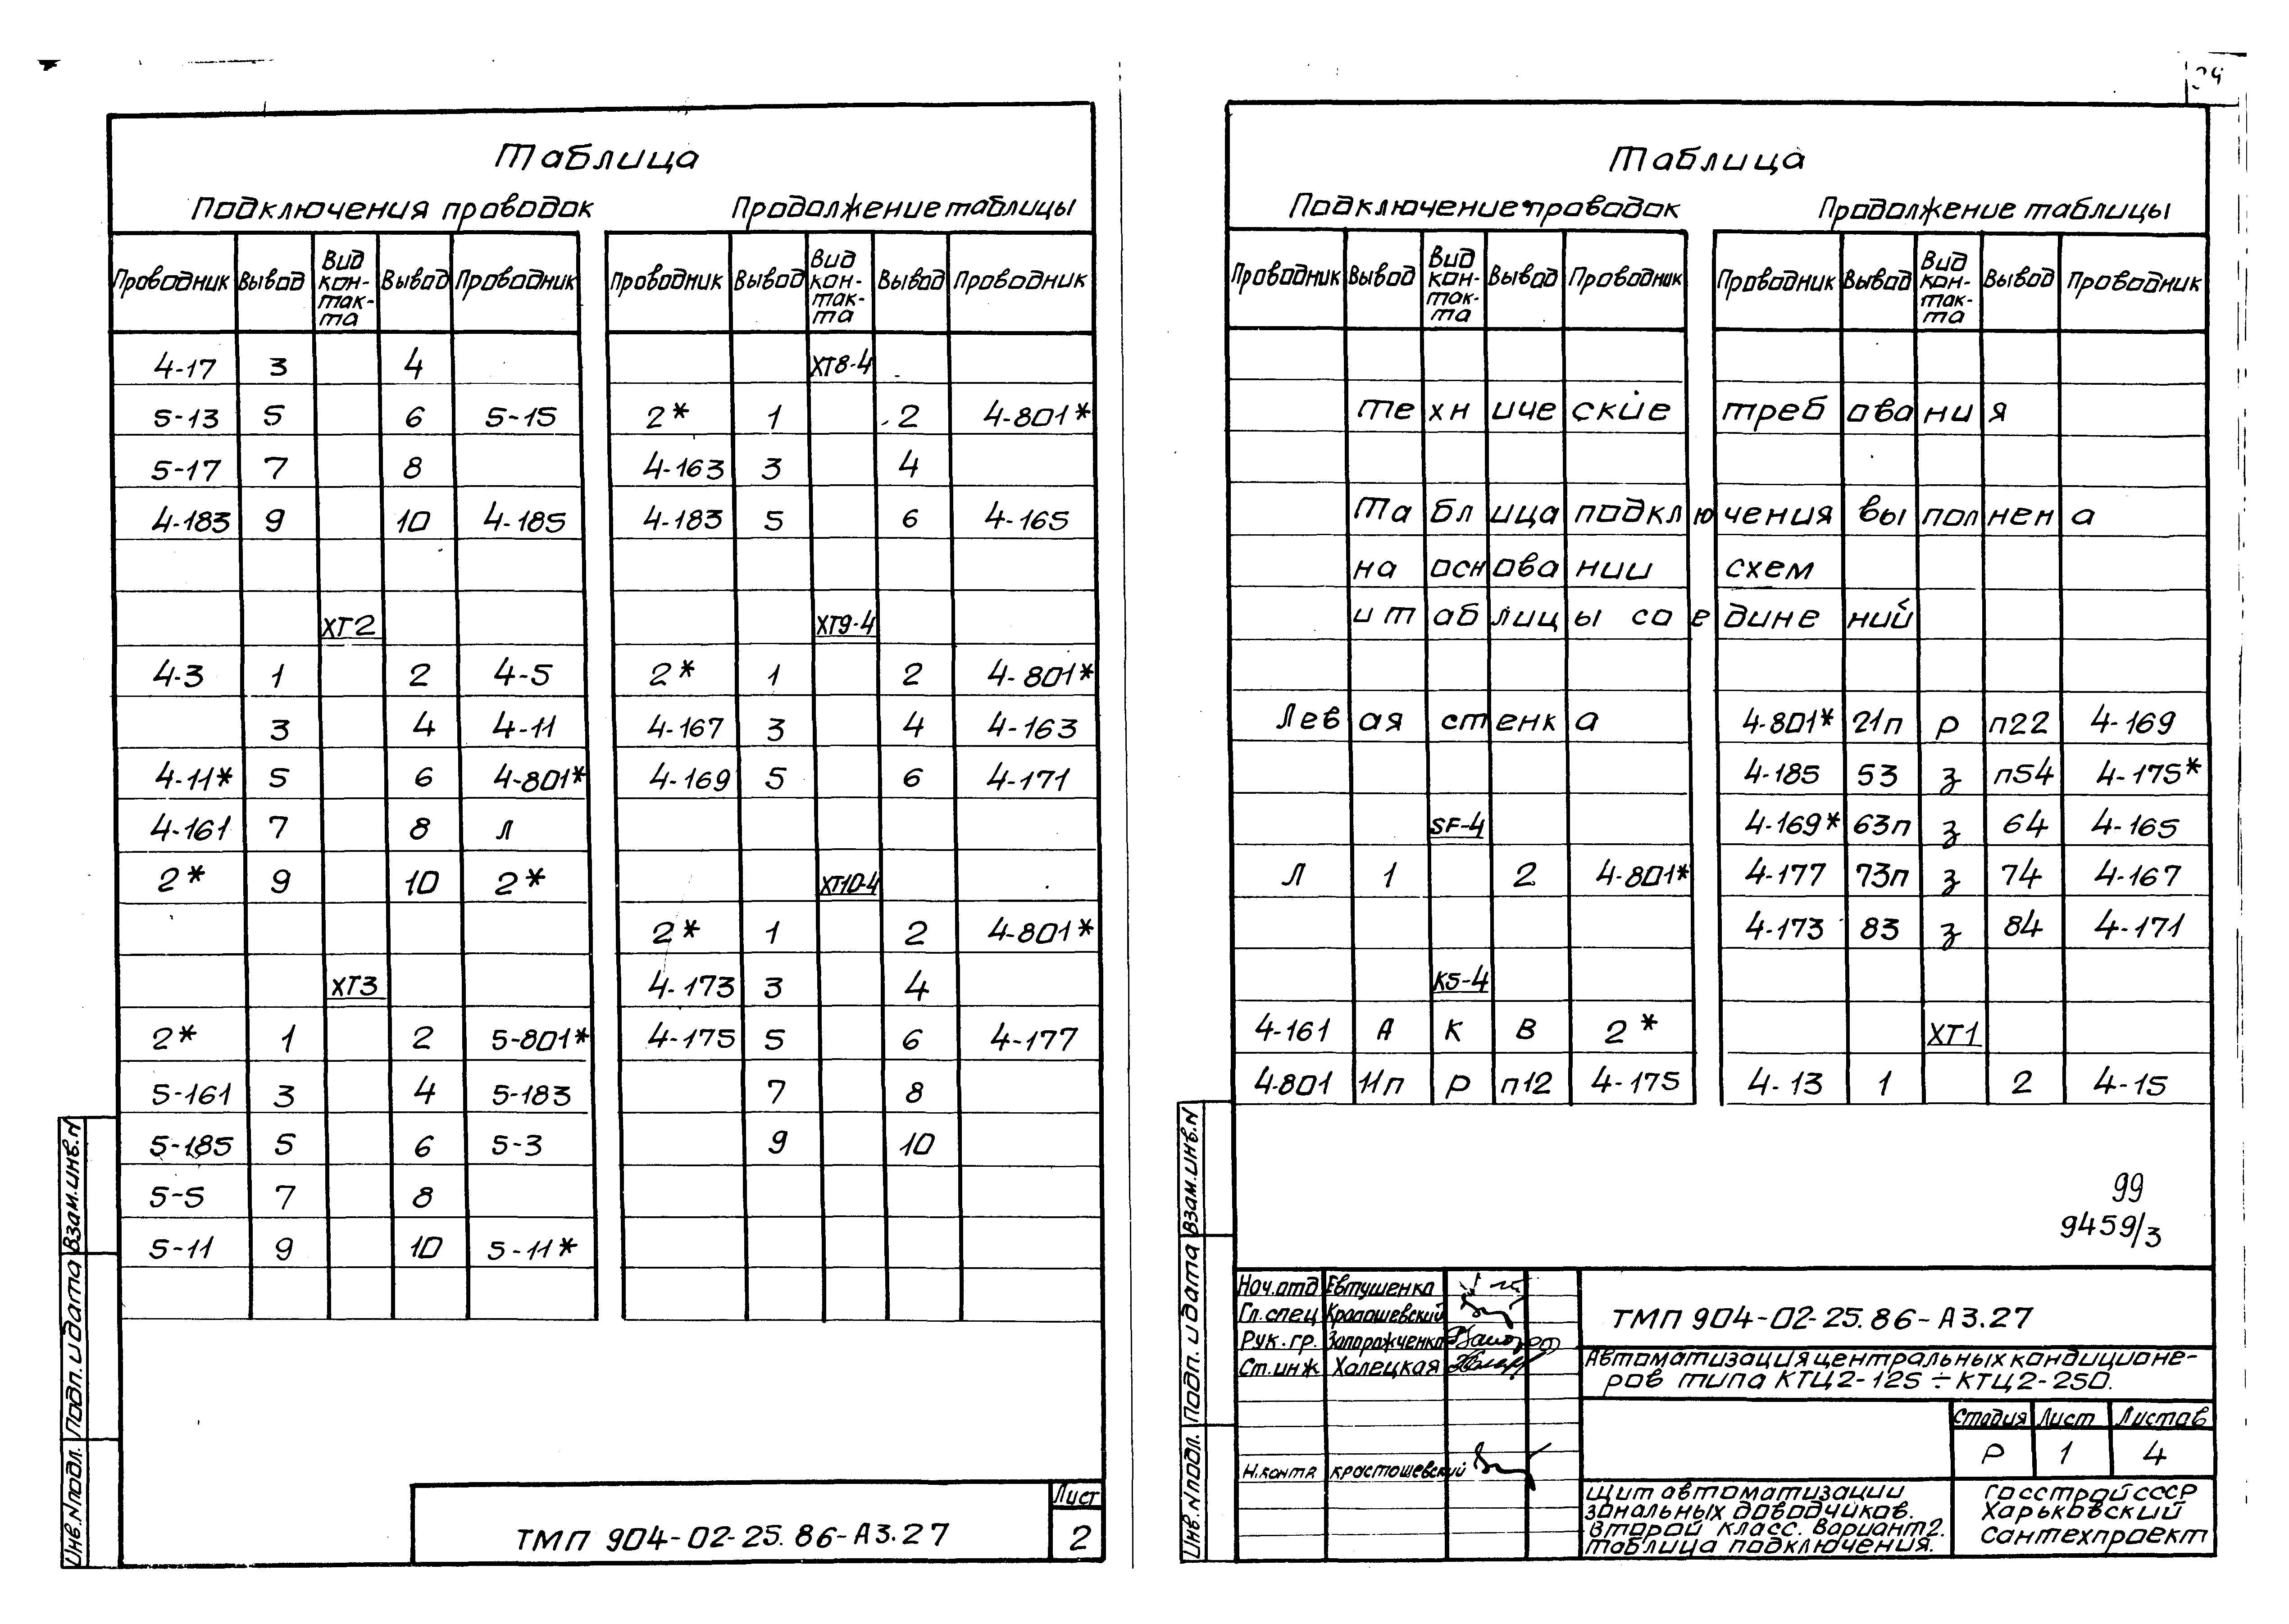 Таблица
Подключения проводок
Продолжение таблицы
Проводник Вывод Вид кон-так-та Вывод Проводник
4-17 3 4
5-13 5 6 5-15
5-17 7 8
4-183 9 10 4-185
ХТ2
4-3 1 2 4-5
3 4 4-11
4-11* 5 6 4-801*
4-161 7 8 Л
2* 9 10 2*
ХТ3
2* 1 2 5-801*
5-161 3 4 5-183
5-185 5 6 5-3
5-5 7 8
5-11 9 10 5-11*
Проводник Вывод Вид кон-так-та Вывод Проводник
ХТ8-4
2* 1 2 4-801*
4-163 3 4
4-183 5 6 4-165
ХТ9-4
2* 1 2 4-801*
4-167 3 4 4-163
4-169 5 6 4-171
ХТ10-4
2* 1 2 4-801*
4-173 3 4
4-175 5 6 4-177
7 8
9 10
Взам.инв.N
Подп. и дата
Инв.Nподл.
ТМП 904-02-25.86-А3.27
Лист
2
Таблица
Подключение проводок
Продолжение таблицы
Проводник Вывод Вид кон-так-та Вывод Проводник
Проводник Вывод Вид кон-так-та Вывод Проводник
технические требования
Таблица подключения выполнена
на основании схем
и таблицы соединений
Левая стенка
SF-4
Л 1 2 4-801*
К5-4
4-161 А К В 2*
4-801 11п Р п12 4-175
4-801* 21п Р п22 4-169
4-185 53 з п54 4-175*
4-169* 63п з 64 4-165
4-177 73п з 74 4-167
4-173 83 з 84 4-171
ХТ1
4-13 1 2 4-15
99
9459/3
Взам.инв.N
Подп. и дата
Инв.Nподл.
Нач.отд Евтушенко
Гл.спец Крастошевский
Рук.гр. Запорожченко
Ст.инж Халецкая
Н.контр Крастошевский
ТМП 904-02-25.86-А3.27
Автоматизация центральных кондиционе-
ров типа КТЦ2-125÷КТЦ2-250.
Стадия Лист Листов
Р 1 4
Щит автоматизации
зональных доводчиков.
Второй класс. Вариант2.
Таблица подключения.
Госстрой СССР
Харьковский
Сантехпроект